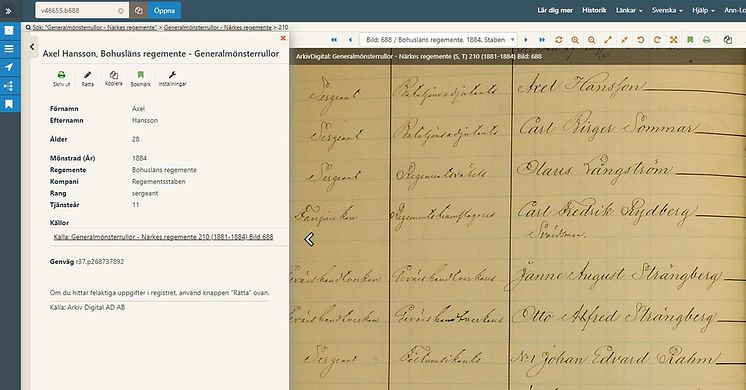 v46655.b688 Öppna Lär dig mer Historik Länkar Svenska Hjälp Ann-Lo
Sök: "Generalmönsterrullor - Närkes regemente" > Generalmönsterrullor - Närkes regemente > 210
Axel Hansson, Bohusläns regemente - Generalmönsterrullor
Skriv ut Rätta Kopiera Bokmärk Inställningar
Förnamn Axel
Efternamn Hansson
Ålder 28
Mönstrad (År) 1884
Regemente Bohusläns regemente
Kompani Regementsstaben
Rang sergeant
Tjänsteår 11
Källor
Källa: Generalmönsterrullor - Närkes regemente 210 (1881-1884) Bild 688
Genväg r37.p268737892
Om du hittar felaktiga uppgifter i registret, använd knappen "Rätta" ovan.
Källa: Arkiv Digital AD AB
Bild: 688 / Bohusläns regemente, 1884, Staben
ArkivDigital: Generalmönsterrullor - Närkes regemente (S, T) 210 (1881-1884) Bild 688
Sergeant Bataljonsadjutants Axel Hansson
Sergeant Bataljonsadjutants Carl Birger Sommar
Sergeant Olaus Långström
Fanjunkare Carl Fredrik Rydberg
Svärdsman.
Gevärshandtverkare Gevärshandtverkares Janne August Strängberg
Gevärshandtverkare Gevärshandtverkares Otto Alfred Strängberg
Sergeant Fältmusikants No 1 Johan Edvard Rahm